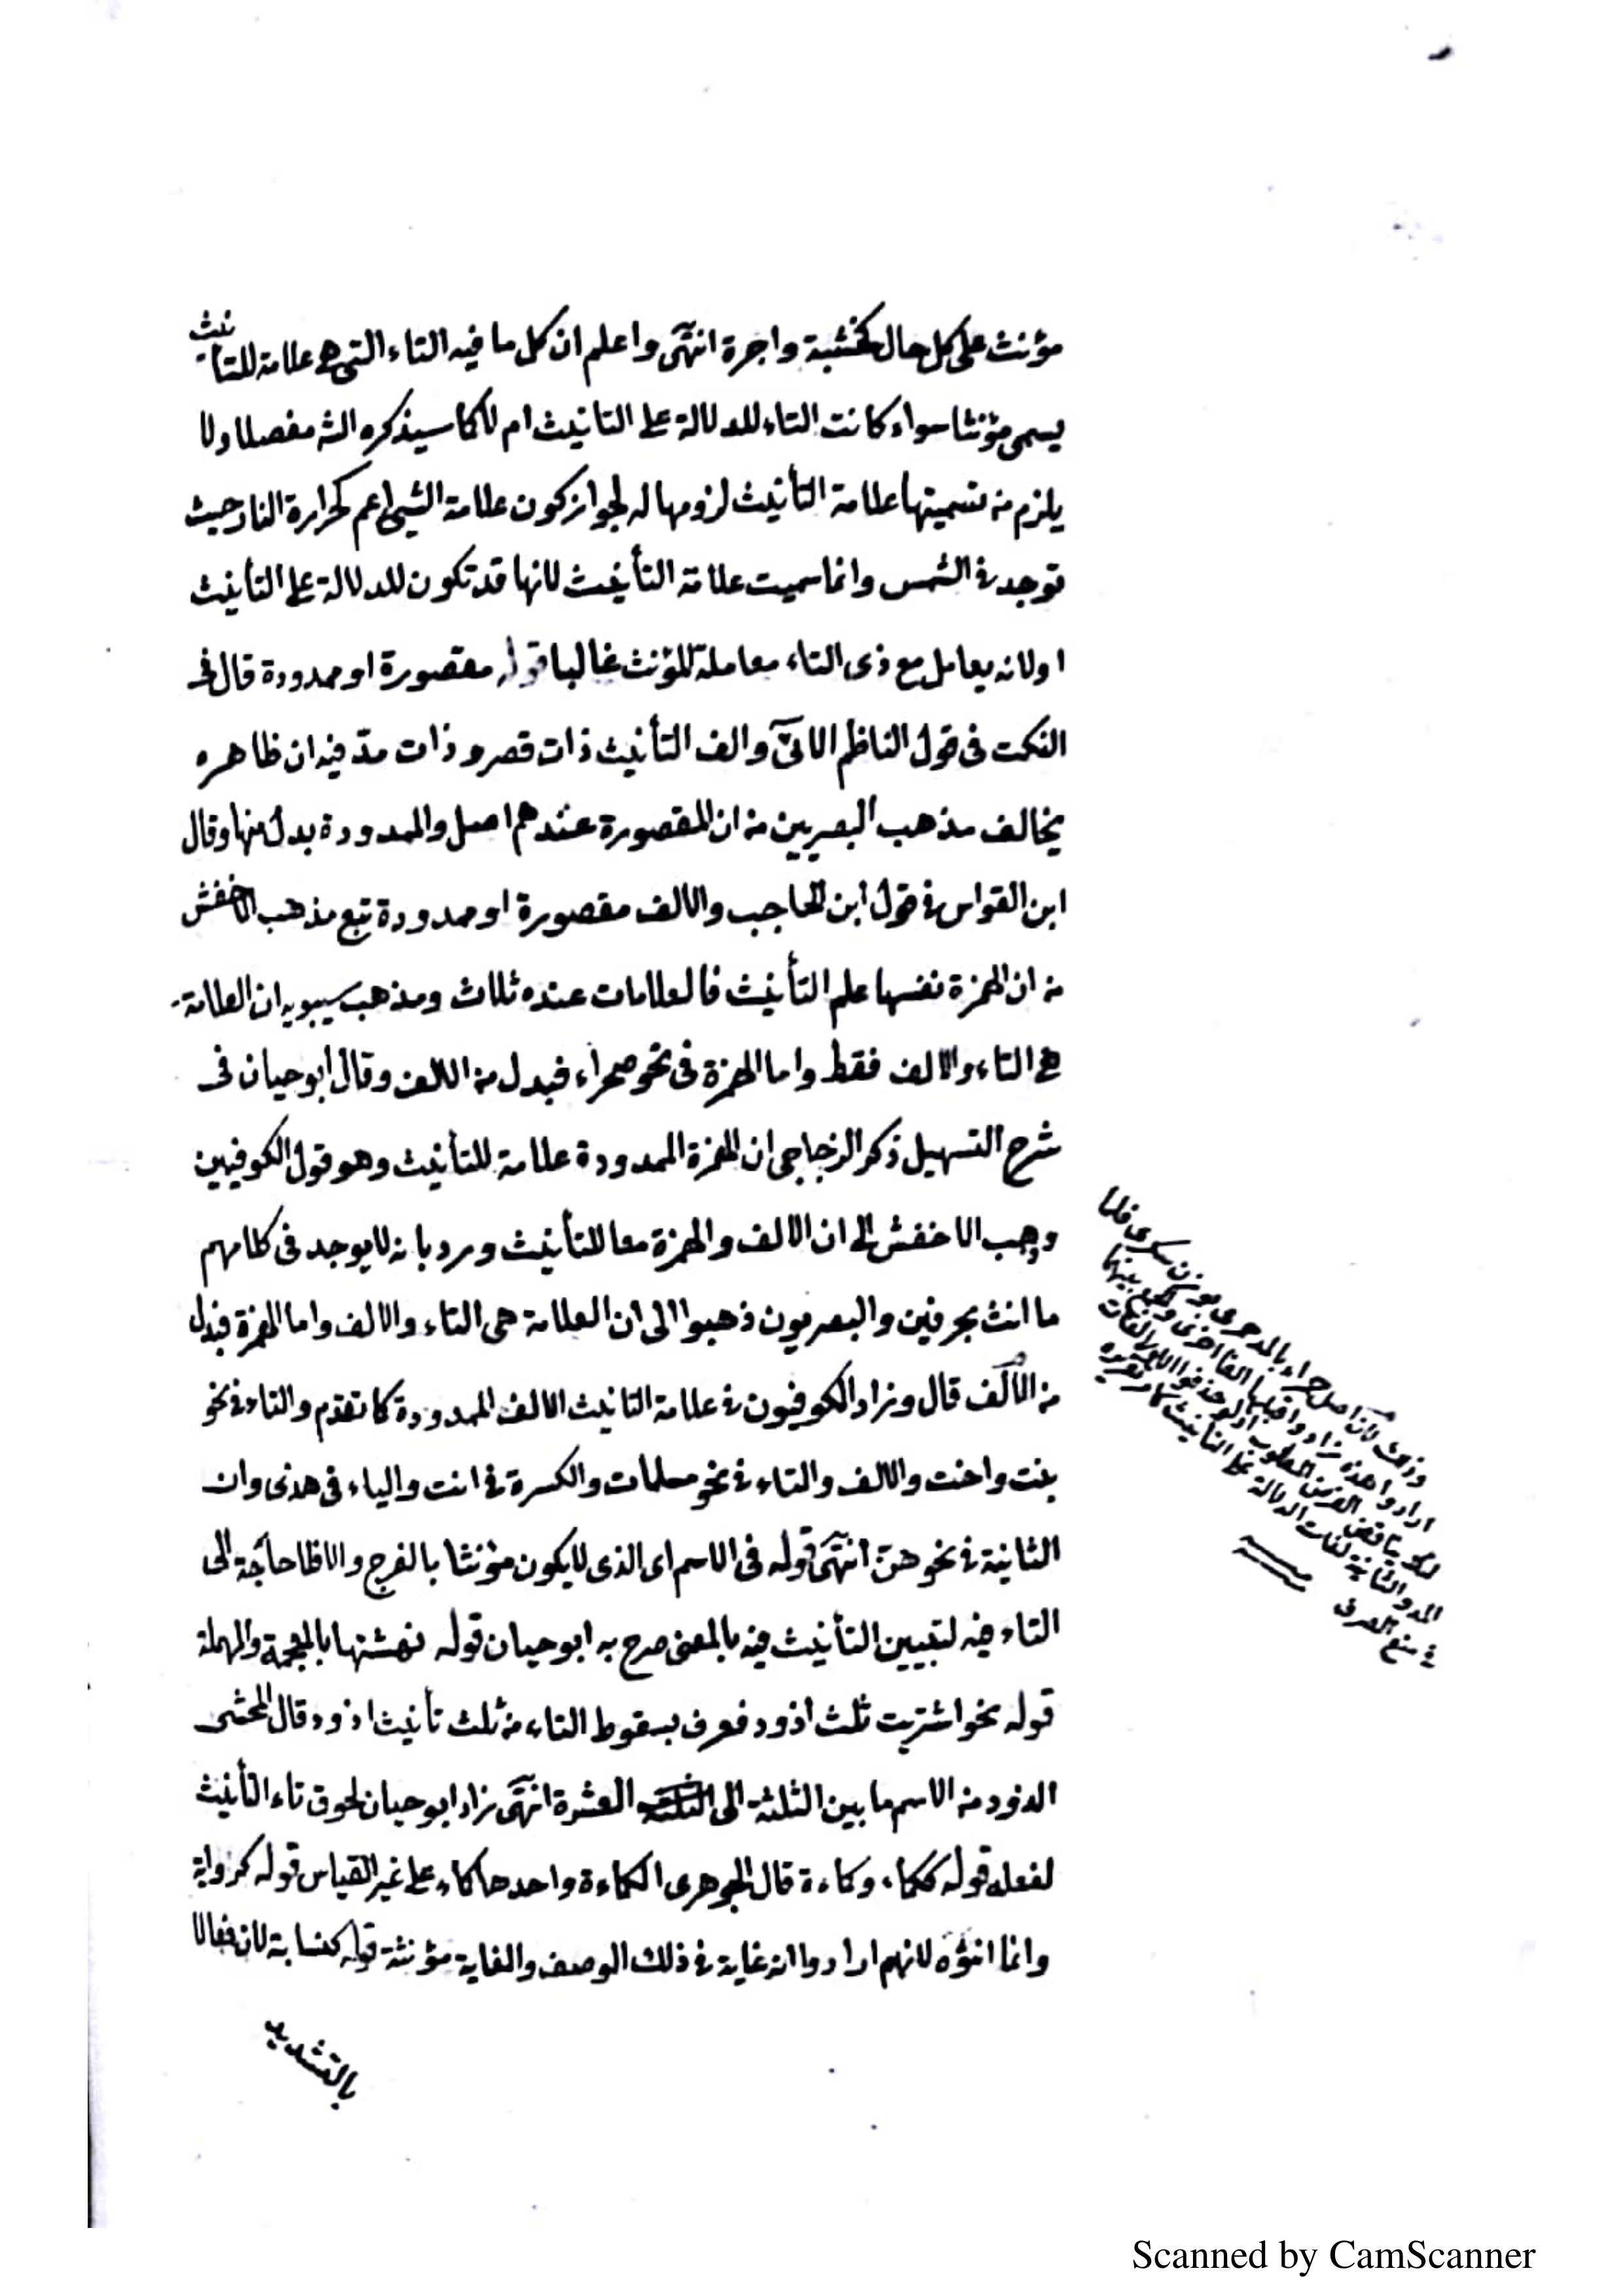 مؤنث على كل حال كخشبة واجرة انتهى واعلم ان كل ما فيه التاء التى هى علامة للتانيث
يسمى مؤنثا سواء كانت التاء للدلالة على التانيث ام لا كما سيذكره الشه مفصلا ولا
يلزم من تسميتها علامة التأنيث لزومها له لجواز كون علامة الشيى اعم كحرارة النار حيث
توجد فى الشمس وانما سميت علامة التأنيث لانها قد تكون للدلالة على التأنيث
او لانه يعامل مع ذى التاء معاملة المؤنث غالبا قوله مقصورة او ممدودة قال فى
النكت فى قول الناظم الاتى والف التأنيث ذات قصر وذات مدّ فيه ان ظاهره
يخالف مذهب البصريين من ان المقصورة عندهم اصل والممدودة بدل منها وقال
ابن القواس فى قول ابن الحاجب والالف مقصورة او ممدودة تبع مذهب الاخفش
من ان الهمزة نفسها علم التأنيث فالعلامات عنده ثلاث ومذهب سيبويه ان العلامة
هى التاء والالف فقط واما الهمزة فى نحو صحراء فبدل من الالف وقال ابو حيان فى
شرح التسهيل ذكر الزجاجى ان الهمزة الممدودة علامة للتأنيث وهو قول الكوفيين
وذهب الاخفش الى ان الالف والهمزة معا للتأنيث ورد بانه لا يوجد فى كلامهم
ما انث بحرفين والبصريون ذهبوا الى ان العلامة هى التاء والالف واما الهمزة فبدل
من الالف قال وزاد الكوفيون فى علامة التانيث الالف الممدودة كما تقدم والتاء فى نحو
بنت واخت والالف والتاء فى نحو مسلمات والكسرة فى انت والياء فى هذى وان
الثانية فى نحو هنّ انتهى قوله فى الاسم اى الذى لا يكون مؤنثا بالفرج والا فلا حاجة الى
التاء فيه لتبيين التأنيث فيه بالمعنى صرح به ابو حيان قوله نهشتها بالمعجمة والمهملة
قوله نحو اشتريت ثلث اذود فعرف بسقوط التاء من ثلث تأنيث اذود قال المحشى
الذود من الاسم ما بين الثلثة الى العشرة انتهى زاد ابو حيان لحوق تاء التأنيث
لفعله قوله ككماء وكماءة قال الجوهرى الكماءة واحدها كماء على غير القياس قوله كرواية
وانما انثوه لانهم ارادوا انه غاية فى ذلك الوصف والغاية مؤنثة قوله كنسابة لان فعالا
بالتشديد
وذلك لان اصل حمراء بالمد حمرى بوزن سكرى فلما
ارادوا مده زادوا قبلها الفا اخرى والجمع بينهما
الغرض المطلوب اذ لو حذفوا الاولى لفات
المد والثانية لفات الدلالة على التأنيث
فى منع الصرف
Scanned by CamScanner